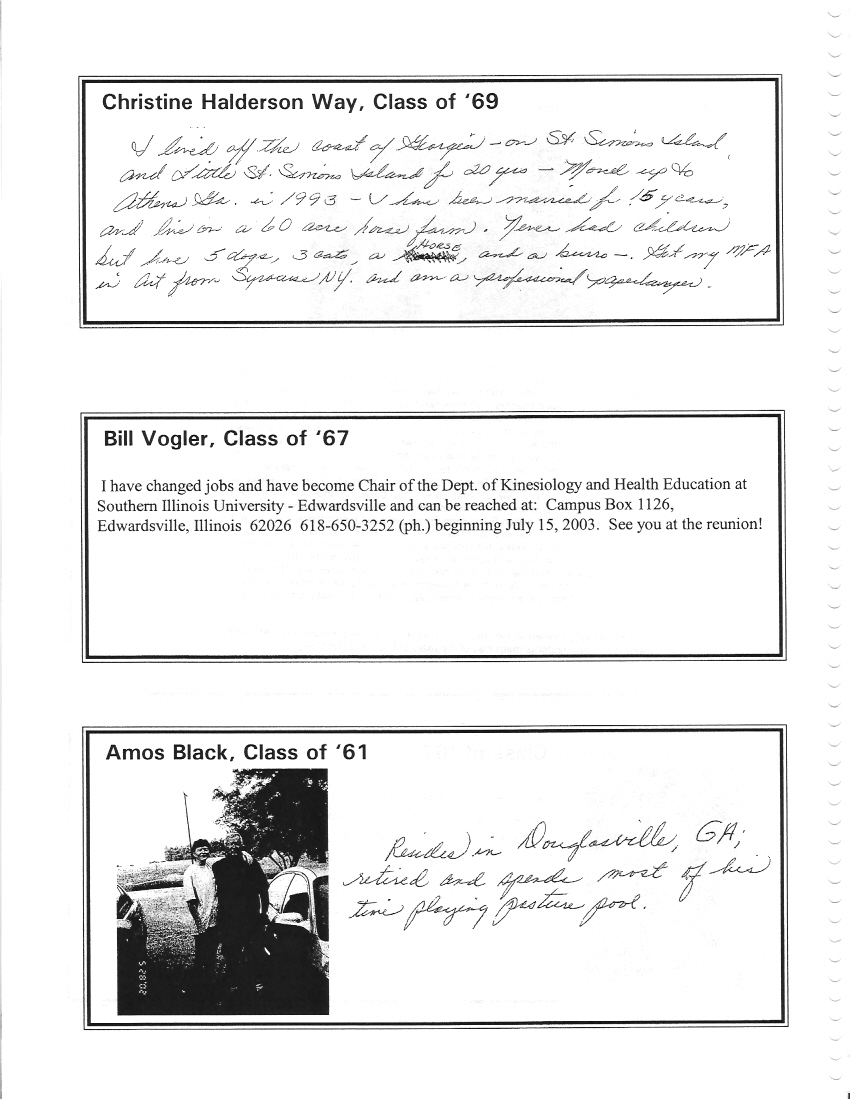 Christine Halderson Way, Class of ‘69
I lived off the coast of Georgia - on St. Simons Island,
and Little St. Simons Island for 20 yrs - Moved up to
Athens Ga. in 1993 - I have been married for 15 years,
and live on a 60 acre horse farm. Never had children
but have 5 dogs, 3 cats, a HORSE, and a burro -. Got my MFA
in Art from Syracuse NY. and am a professional paperhanger.
Bill Vogler, Class of ‘67
I have changed jobs and have become Chair of the Dept. of Kinesiology and Health Education at
Southern Illinois University - Edwardsville and can be reached at: Campus Box 1126,
Edwardsville, Illinois 62026 618-650-3252 (ph.) beginning July 15, 2003. See you at the reunion!
Amos Black, Class of ‘61
Resides in Douglasville, GA;
retired and spends most of his
time playing pasture pool.